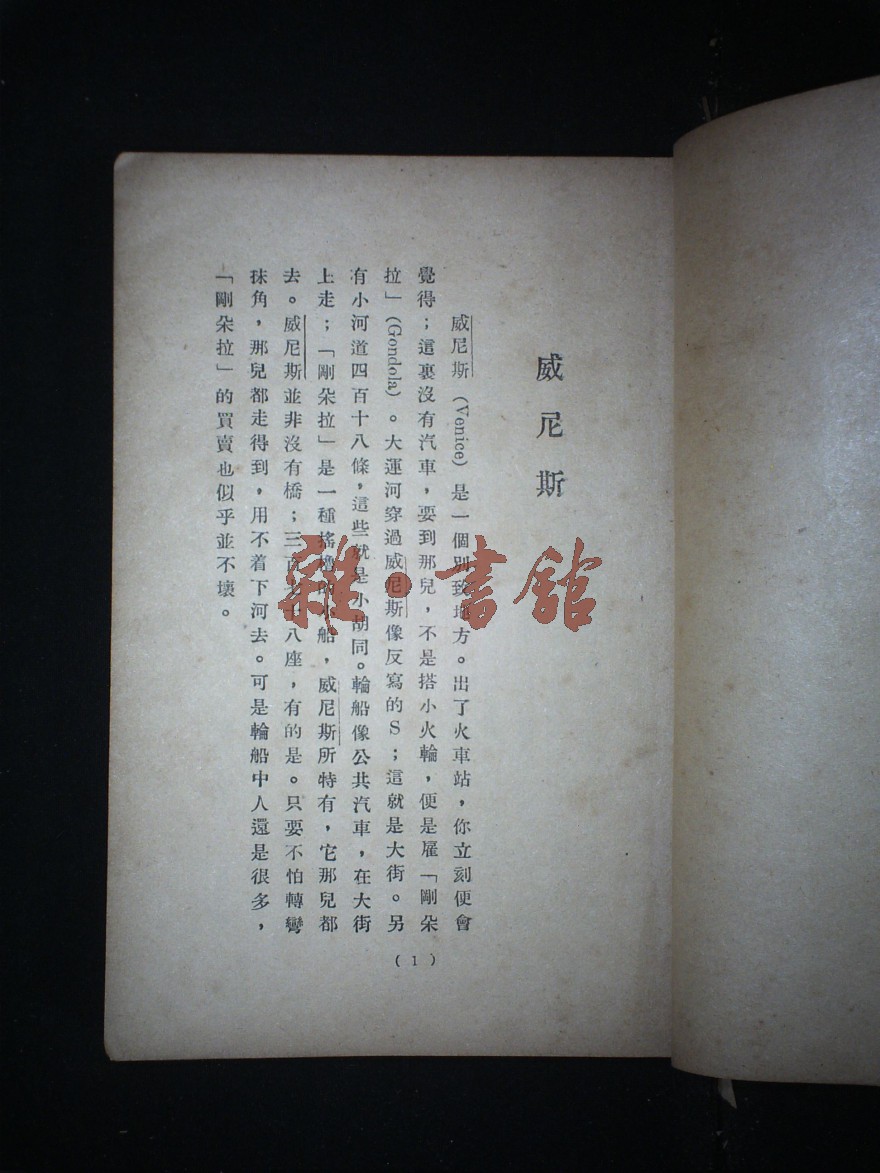 威尼斯
威尼斯（Venice）是一個別致地方。出了火車站，你立刻便會
覺得；這裏沒有汽車，要到那兒，不是搭小火輪，便是雇「剛朵
拉」（Gondola）。大運河穿過威尼斯像反寫的S；這就是大街。另
有小河道四百十八條，這些就是小胡同。輪船像公共汽車，在大街
上走；「剛朵拉」是一種搖櫓的小船，威尼斯所特有，它那兒都
去。威尼斯並非沒有橋；三百七十八座，有的是。只要不怕轉彎
抹角，那兒都走得到，用不着下河去。可是輪船中人還是很多，
「剛朵拉」的買賣也似乎並不壞。
(1)
雜·書館